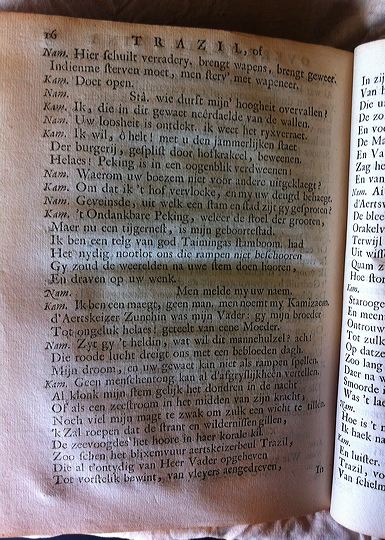 16 TRAZIL, of
Nam. Hier schuilt verradery, brengt wapens, brengt geweer.
Indienme sterven moet, men sterv' met wapeneer.
Kam. Doet open.
Nam. Stâ. wie durft mijn' hoogheit overvallen?
Kam. Ik, die in dit gewaet neêrdaelde van de wallen.
Nam. Uw loosheit is ontdekt. ik weet het ryxverraet.
Kam. Ik wil, ô helt! met u den jammerlijken staet
Der burgerij, gesplist door hofkrakeel, beweenen.
Helaes! Peking is in een oogenblik verdweenen!
Nam. Waerom uw boezem niet voor andere uitgeklaegt?
Kam. Om dat ik 't hof vervlocke, en my uw deugd behaegt.
Nam. Geveinsde, uit welk een stam en stad zijt gy gesproten?
Kam. 't Ondankbare Peking, weleer de stoel der grooten,
Maer nu een tijgernest, is mijn geboortestad.
Ik ben een telg van god Taimingas stamboom. had
Het nydig nootlot ons die rampen niet beschooren
Gy zoud de weerelden na uwe stem doen hooren,
En draven op uw wenk.
Nam. Men melde my uw naem.
Kam. Ik ben een maegt, geen man. men noemt my Kamizaem.
d'Aertskeizer Zunchin was mijn Vader: gy mijn broeder
Tot ongeluk helaes! geteelt van eene Moeder.
Nam. Zyt gy 't heldin, wat wil dit mannehulzel? ach!
Die roode lucht dreigt ons met een bebloeden dagh.
Mijn droom, en uw gewaet kan niet als rampen spellen.
Kam. Geen menschentong kan d'afgryslijkheên vertellen.
Al klonk mijn stem gelijk het dondren in de nacht
Of als een zeestroom in het midden van zijn kracht,
Noch viel mijn magt te zwak om zulk een wicht te tillen.
'k Zal roepen dat de strant en wildernissen gillen,
De zeevoogdes het hoore in haer korale kil.
Zoo schen het blixemvuur aertskeizerbeul Trazil,
Die al t'ontydig van Heer Vader opgeheven
Tot vorstelik bewint, van vleyers aengedreven,
In
In zij
Van h
Die u
De zo
En vo
De Ma
En Va
Zag he
En van
Nam. Ai
d'Aertsv
De bleel
Orakelv
Terwijl
Uit wiss
Quam z
Hoe ston
Kam.
Starooge
En meen
Ontrouw
Tot zulk
Op datze
Zoo lang
Daer na
Smoorde i
Was 't lac
Nam.
Hoe is 't m
Ik haek na
Kam.
En luister.
Trazil, vo
Van schelm